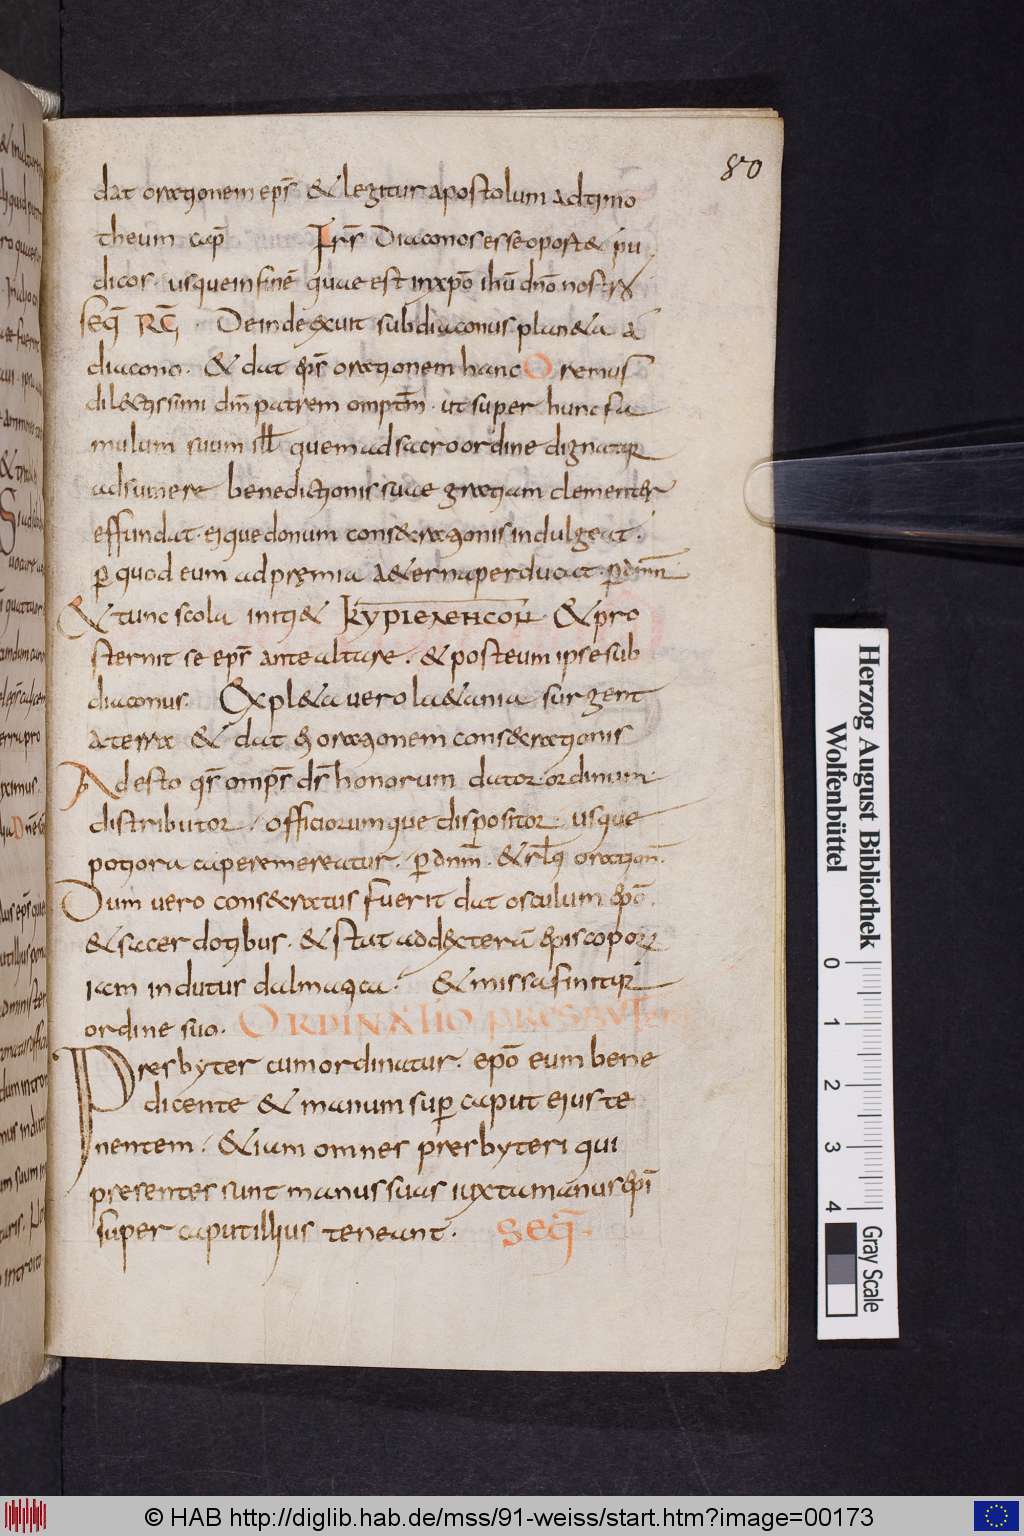 80
dat orationem ep̄s & legitur apostolum ad timo
theum cap̄ Frs̄ Diaconos esse oport& pu
dicos. usque in finē quae est in xp̄o ihū dn̄o nostro
seq̄ RḠ Deinde exuit subdiaconus plan&a a
diacono. & dat ep̄s orationem hanc Oremus
dil&issimi dm̄ patrem omptm̄. ut super hunc fa
mulum suum ill̄ quem ad sacro ordine dignatur
adsumere benedictionis suae gratiam clementer
effundat. eique donum consecrationis indulgeat.
p quod eum ad premia a&erna perducat. p dnm̄
& tunc scola initi& kyrieleison. & pro
sternit se ep̄s ante altare. & post eum ipse sub
diaconus. Expl&a vero la&ania surgent
a terra & dat ei orationem consecrationis
Adesto qs̄ omps̄ ds̄ honorum dator. ordinum
distributor. officiorumque dispositor. usque
potiora capere mereatur. p dnm̄. & oration̄.
Dum vero consecratus fuerit dat osculum ep̄o
& sacerdotibus. & stat ad dexterā episcoporum
iam indutus dalmatica. & missa finitur
ordine suo. ORDINATIO PRESBYTERI
Presbyter cum ordinatur. ep̄o eum bene
dicente & manum sup caput eius te
nentem. &iam omnes presbyteri qui
presentes sunt manus suas iuxta manus ep̄i
super caput illius teneant. Seq̄.
Herzog August Bibliothek
Wolfenbüttel
0 1 2 3 4
Gray Scale
© HAB http://diglib.hab.de/mss/91-weiss/start.htm?image=00173